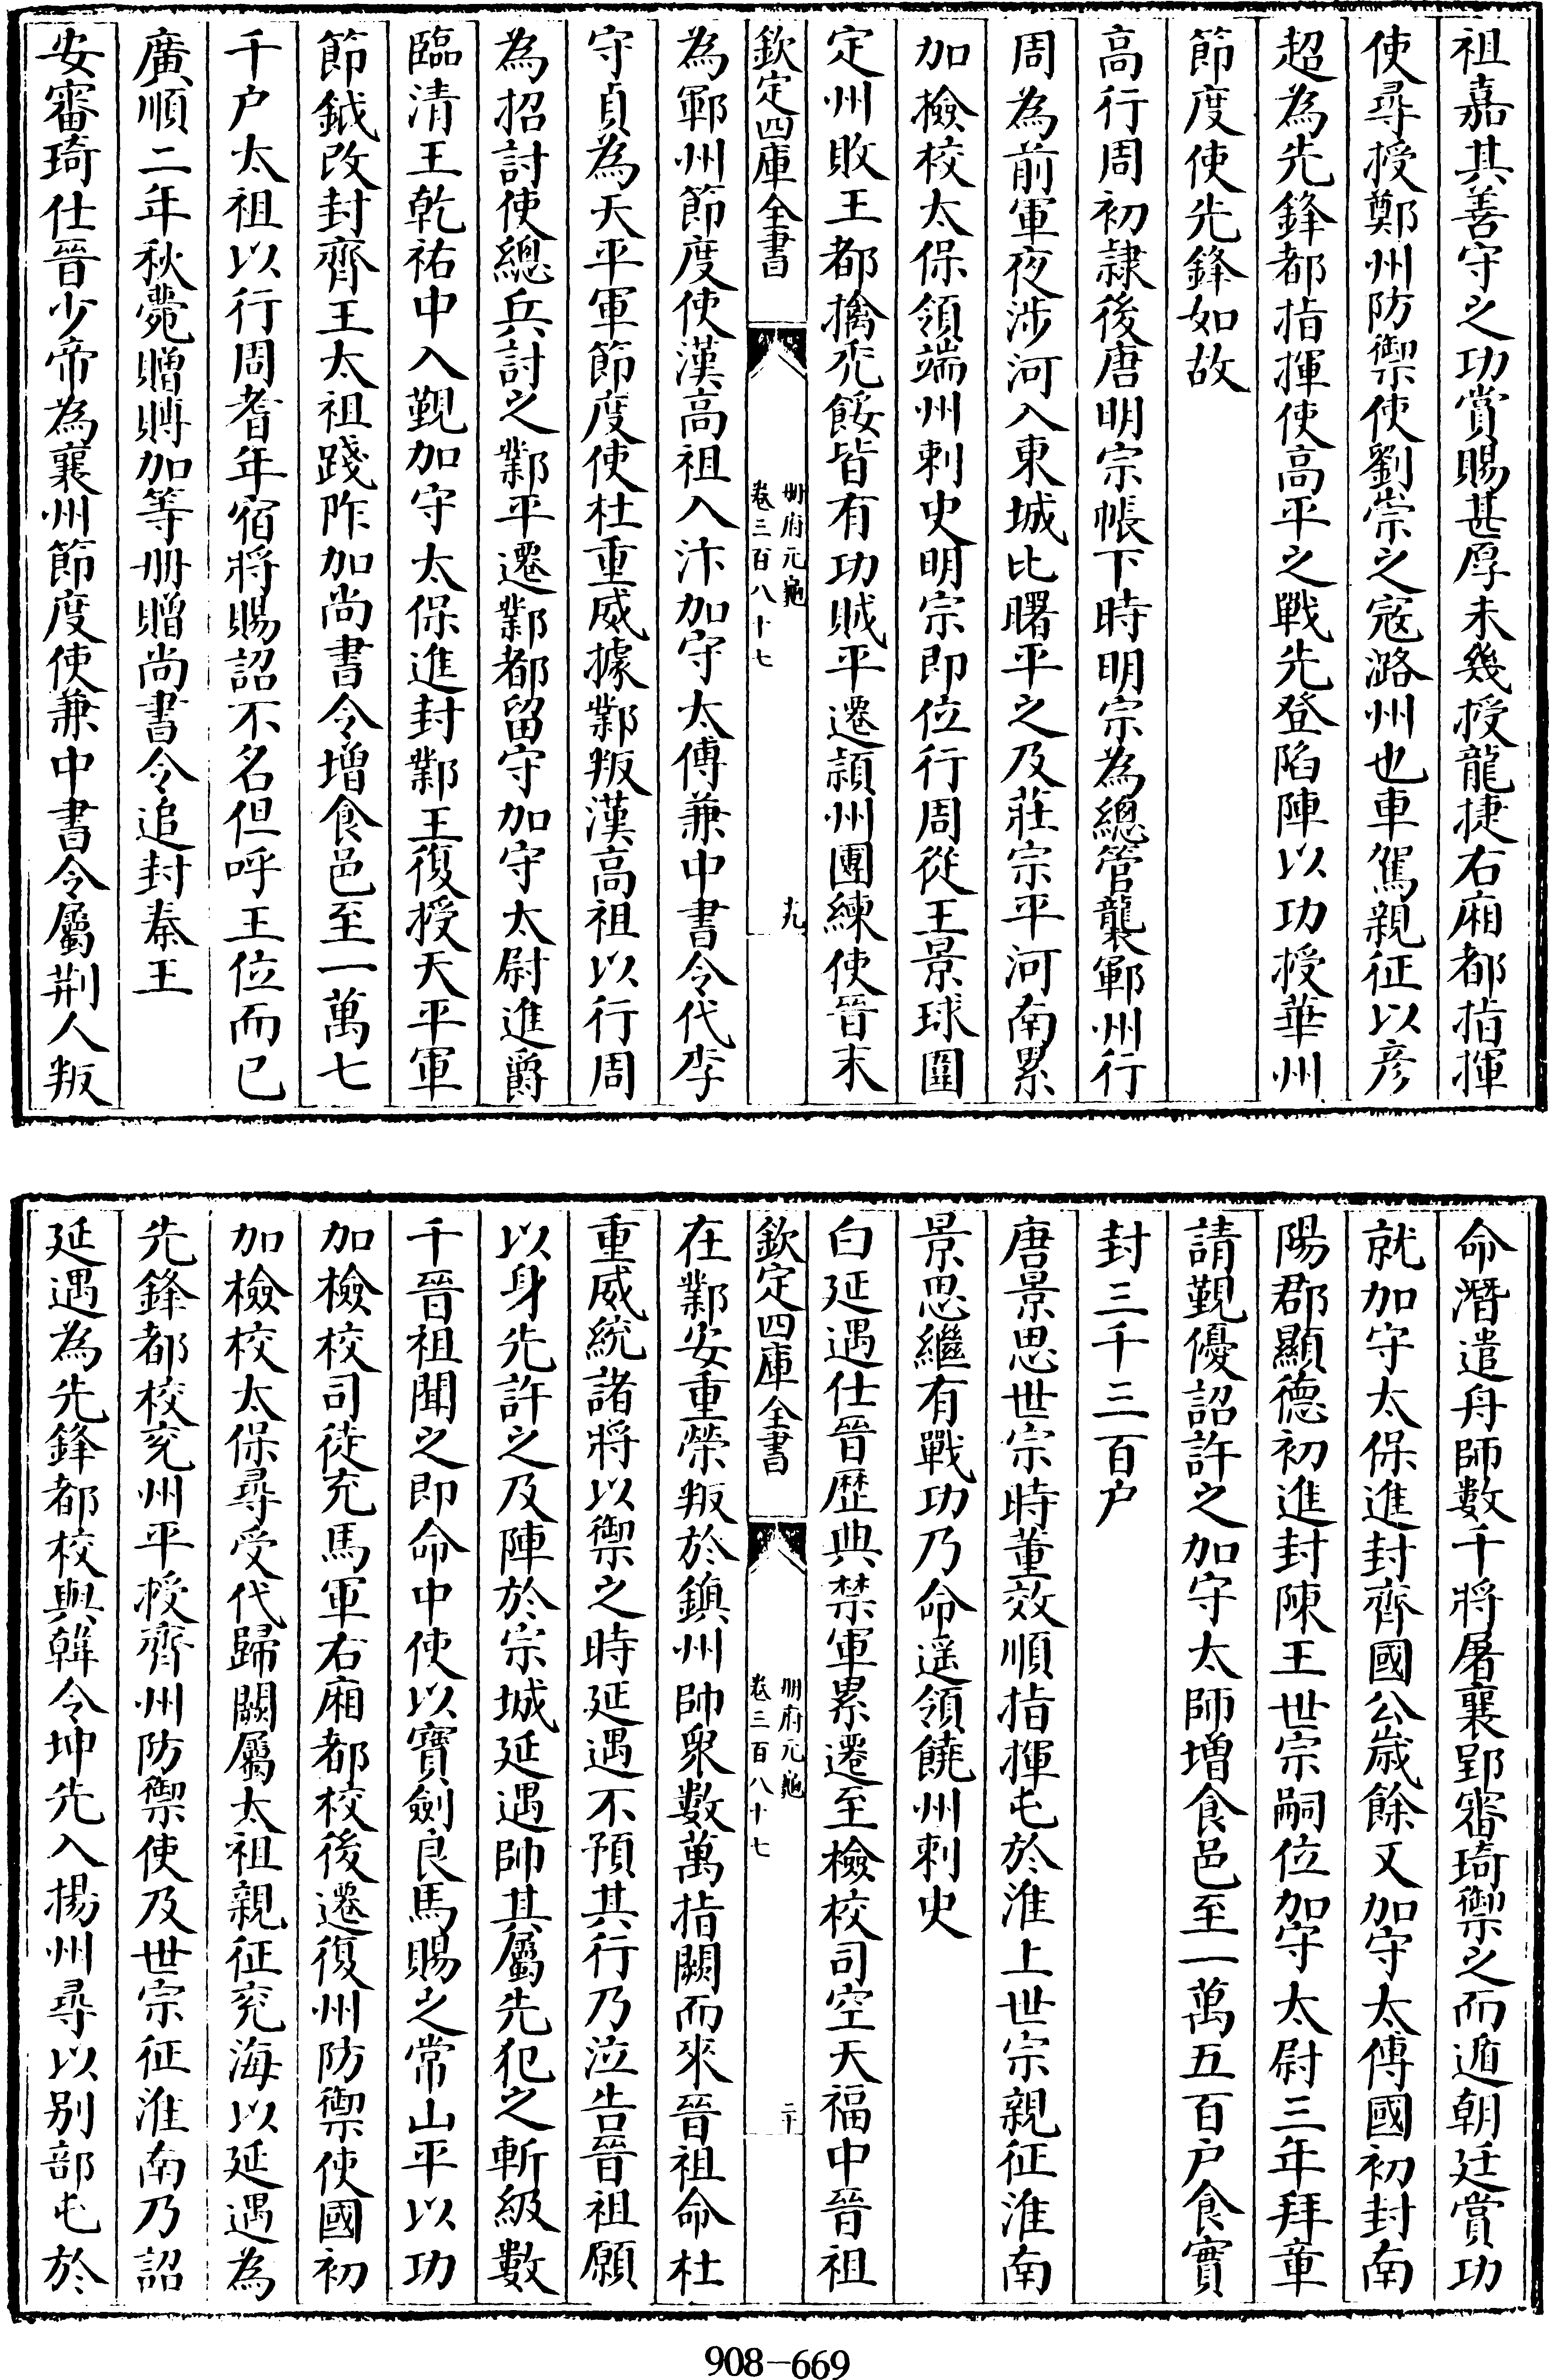 祖嘉其善守之功賞賜甚厚未幾授龍捷右廂都指揮
使尋授鄭州防禦使劉崇之宼潞州也車駕親征以彦
超為先鋒都指揮使高平之戰先登陷陣以功授華州
節度使先鋒如故
高行周初隷後唐明宗帳下時明宗為總管襲鄆州行
周為前軍夜涉河入東城比曙平之及莊宗平河南累
加檢校太保領端州刺史明宗即位行周從王景球圍
定州敗王都擒禿餒皆有功賊平遷潁州團練使晉末
欽定四庫全書
冊府元龜
卷三百八十七
十九
為鄆州節度使漢高祖入汴加守太傅兼中書令代李
守貞為天平軍節度使杜重威據鄴叛漢高祖以行周
為招討使總兵討之鄴平遷鄴都留守加守太尉進爵
臨清王乾祐中入覲加守太保進封鄴王復授天平軍
節鉞改封齊王太祖踐阼加尚書令增食邑至一萬七
千户太祖以行周耆年宿將賜詔不名但呼王位而已
廣順二年秋薨贈賻加等冊贈尚書令追封秦王
安審琦仕晉少帝為襄州節度使兼中書令屬荆人叛
命潛遣舟師數千將屠襄郢審琦禦之而遁朝廷賞功
就加守太保進封齊國公嵗餘又加守太傅國初封南
陽郡顯徳初進封陳王世宗嗣位加守太尉三年拜章
請覲優詔許之加守太師増食邑至一萬五百户食實
封三千三百户
唐景思世宗時董效順指揮屯於淮上世宗親征淮南
景思繼有戰功乃命遥領饒州刺史
白延遇仕晉歴典禁軍累遷至檢校司空天福中晉祖
欽定四庫全書
冊府元龜
卷三百八十七
二十
在鄴安重榮叛於鎮州帥衆數萬指闕而來晉祖命杜
重威統諸將以禦之時延遇不預其行乃泣告晉祖願
以身先許之及陣於宗城延遇帥其屬先犯之斬級數
千晉祖聞之即命中使以寳劍良馬賜之常山平以功
加檢校司徒充馬軍右廂都校後遷復州防禦使國初
加檢校太保尋受代歸闕屬太祖親征兖海以延遇為
先鋒都校兖州平授齊州防禦使及世宗征淮南乃詔
延遇為先鋒都校與韓令坤先入揚州尋以别部屯於
908-669